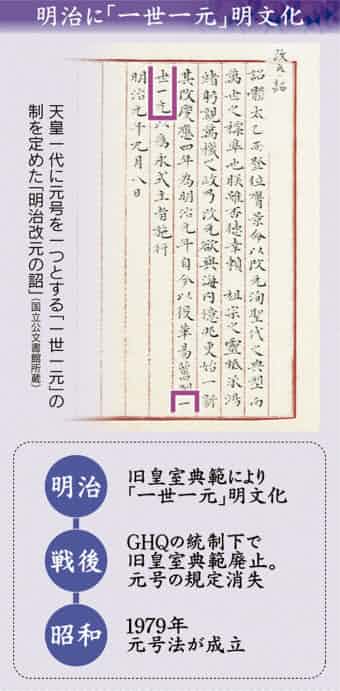 明治に「一世一元」明文化
改元詔
詔體太乙而登位膺景命以改元洵聖代之典型而
萬世之標準也朕雖否德幸賴　祖宗之靈祗承鴻
緒躬親萬機之政乃改元欲與海內億兆更始一新
其改慶應四年為明治元年自今以後革易舊制一
世一元以為永式主者施行
明治元年九月八日
天皇一代に元号を一つとする「一世一元」の
制を定めた「明治改元の詔」(国立公文書館所蔵)
明治
旧皇室典範により
「一世一元」明文化
戦後
GHQの統制下で
旧皇室典範廃止。
元号の規定消失
昭和
1979年
元号法が成立